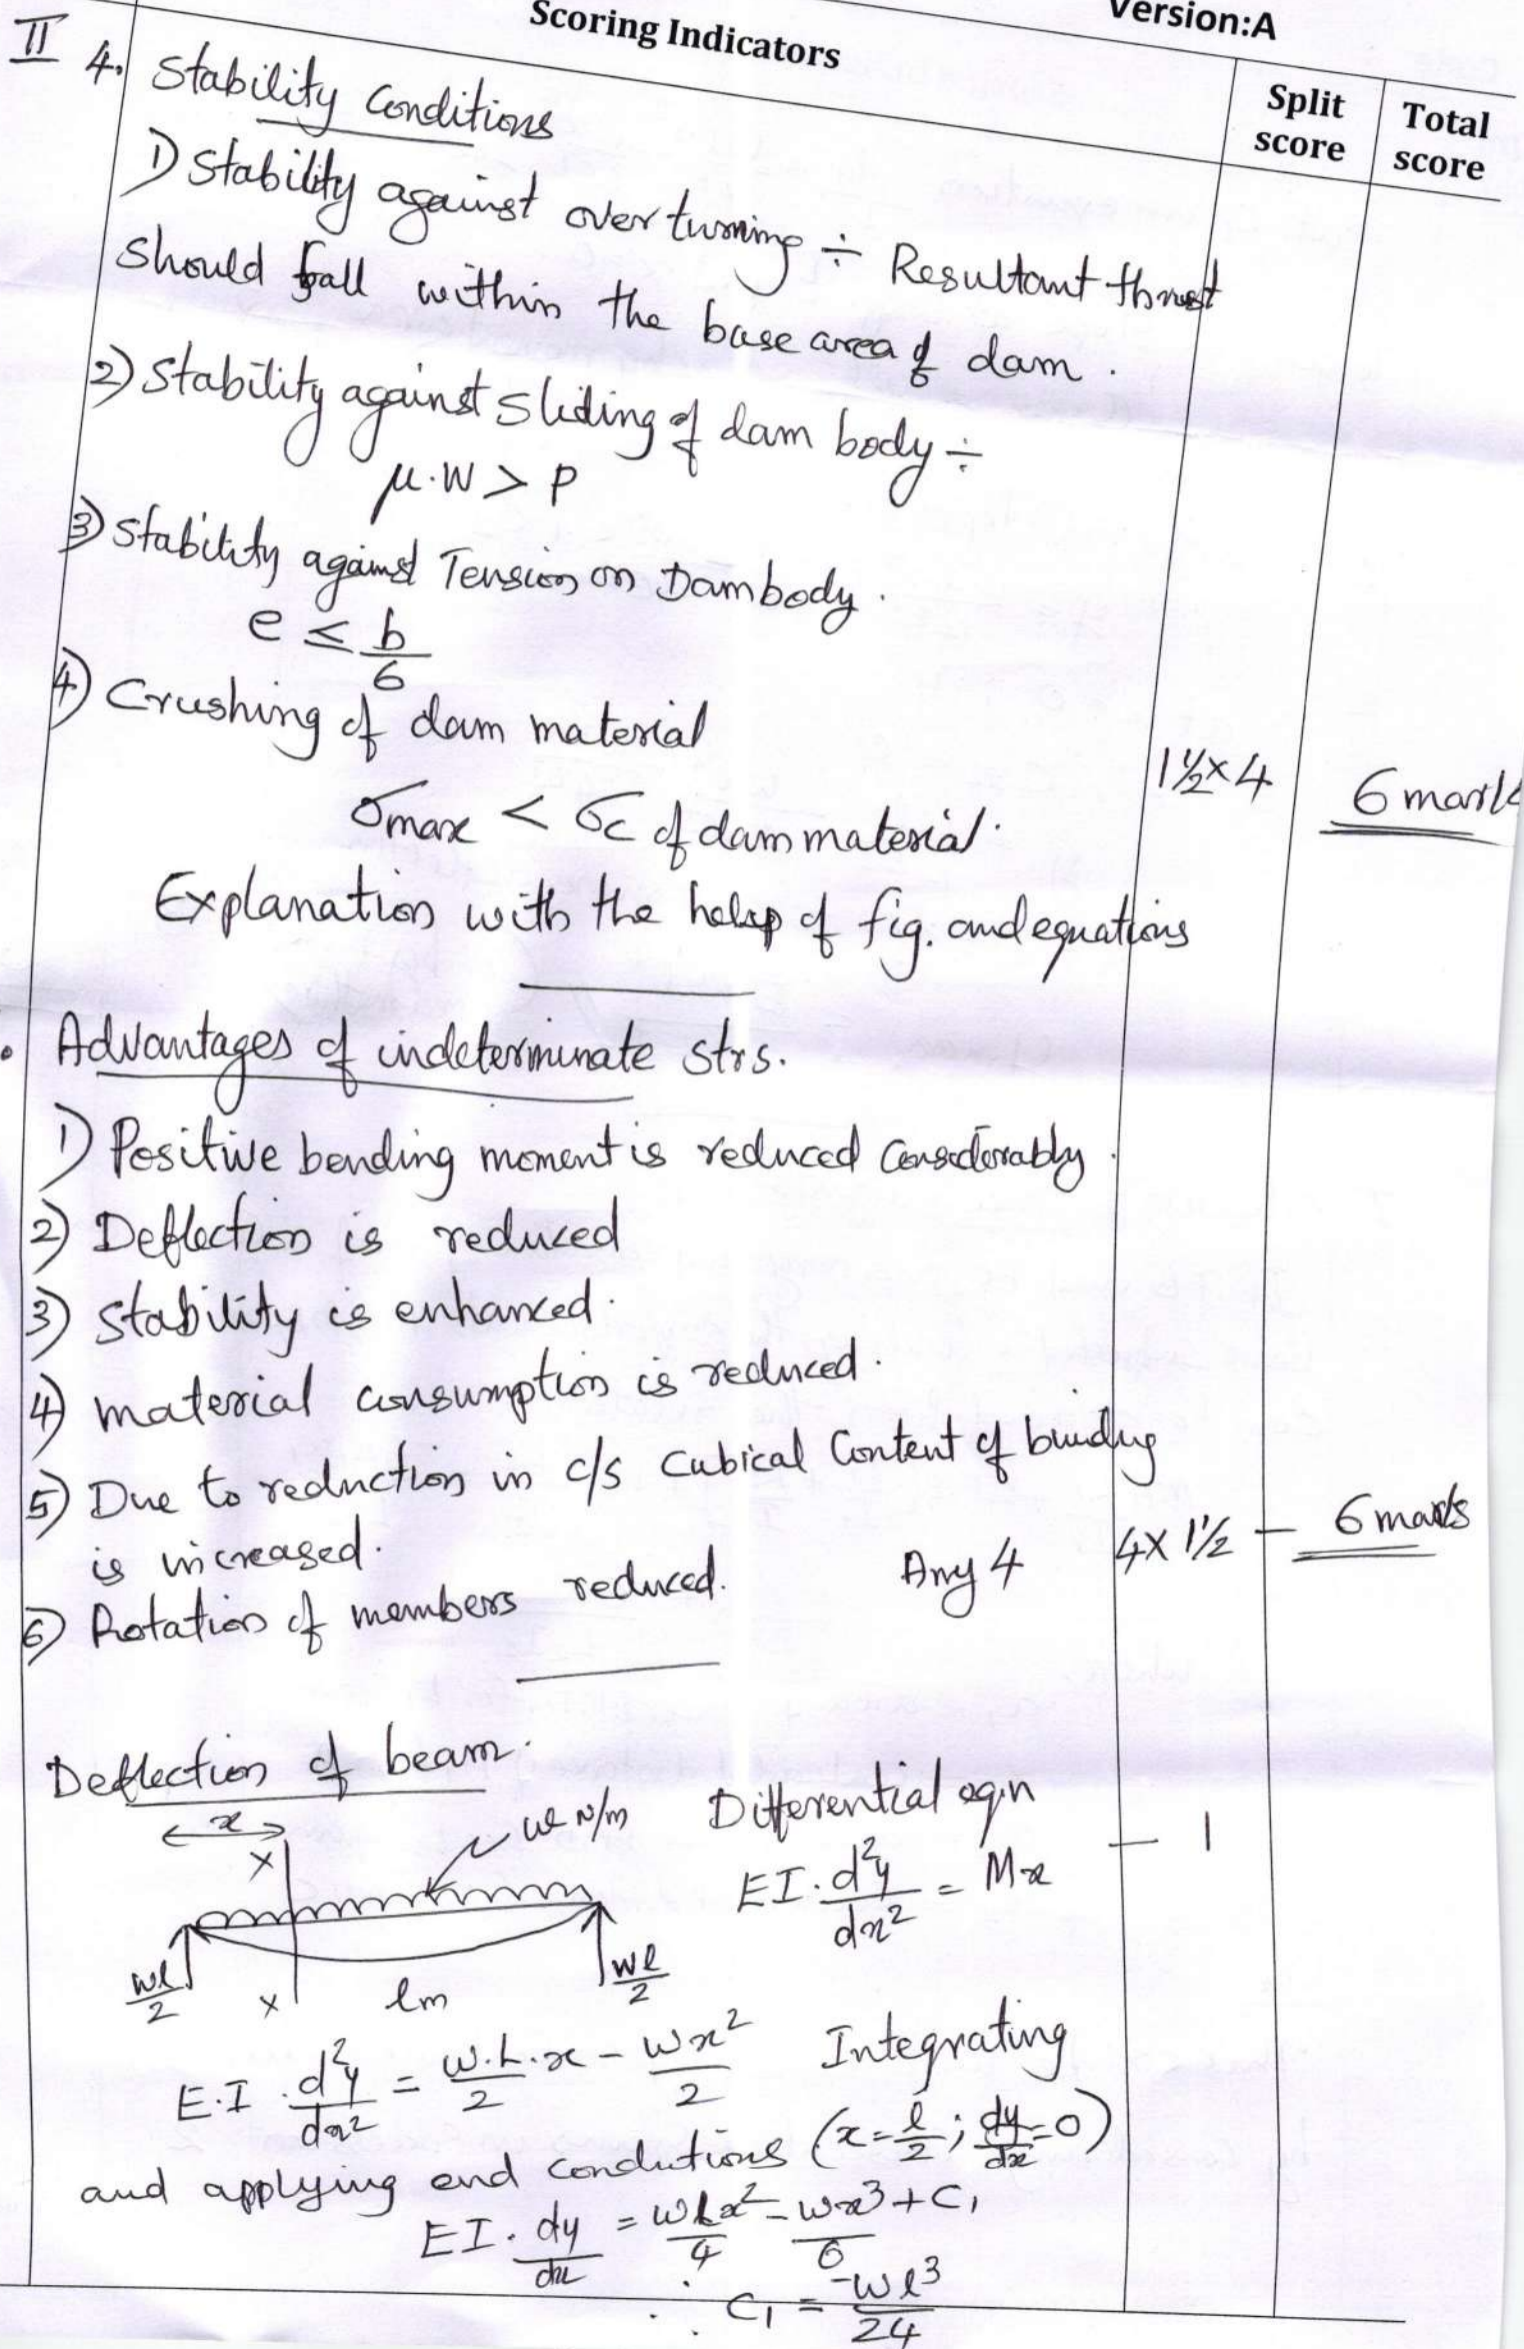 Version:A
Scoring Indicators
Split score
Total score
II 4. Stability Conditions
1) Stability against overturning ÷ Resultant thrust
should fall within the base area of dam.
2) Stability against sliding of dam body ÷
μ.W > P
3) Stability against Tension on Dambody.
e ≤ b/6
4) Crushing of dam material
σmax < σc of dam material.
1½×4
6 marks
Explanation with the help of fig. and equations
Advantages of indeterminate strs.
1) Positive bending moment is reduced considerably.
2) Deflection is reduced
3) Stability is enhanced.
4) material consumption is reduced.
5) Due to reduction in c/s cubical content of buidng
is increased.
Any 4
4×1½ — 6 marks
6) Rotation of members reduced.
Deflection of beam.
Differential eqn
x
w N/m
X
EI.d²y/dx² = Mx
— 1
wl/2
X
lm
wl/2
E.I.d²y/dx² = w.L.x/2 - wx²/2 Integrating
and applying end condutions (x=l/2; dy/dx=0)
EI.dy/dx = wLx²/4 - wx³/6 + C₁
∴ C₁ = -wl³/24